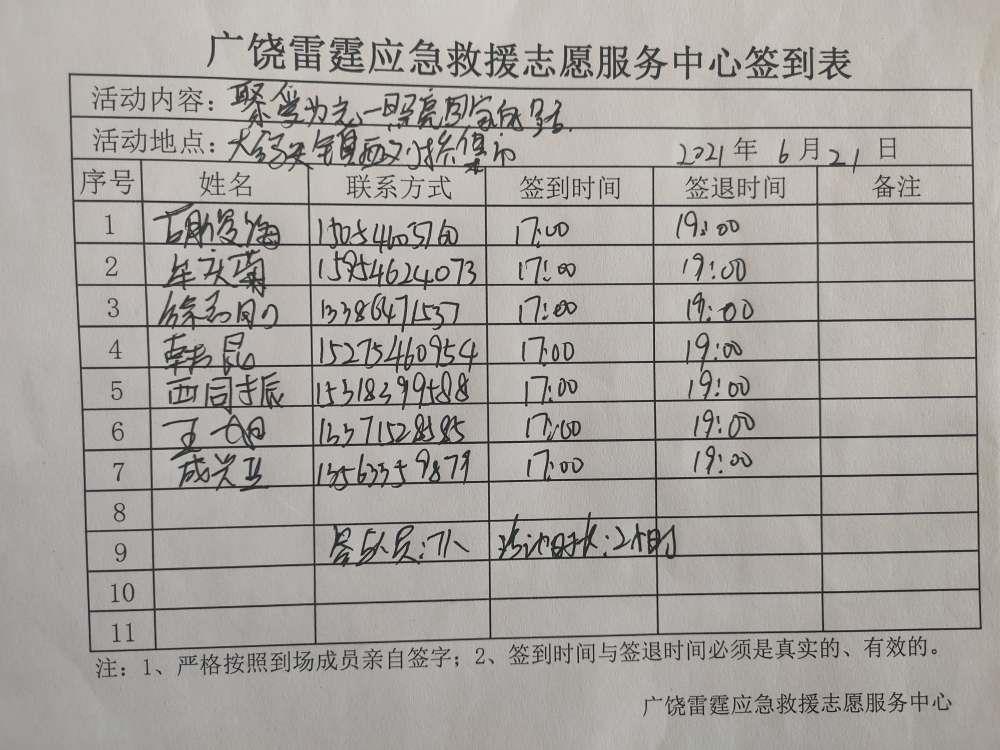 广饶雷霆应急救援志愿服务中心签到表
活动内容：聚爱为光，照亮回家的路
活动地点：大 镇西刘桥
2021年6月21日
序号 姓名 联系方式 签到时间 签退时间 备注
1 15054603760 17:00 19:00
2 牟庆菊 15954624073 17:00 19:00
3 徐 13386471537 17:00 19:00
4 韩昆 15275460954 17:00 19:00
5 西同振 15318399588 17:00 19:00
6 王 13371528585 17:00 19:00
7 成兴卫 13563359879 17:00 19:00
8
9 参与人员:7人 活动时长:2小时
10
11
注：1、严格按照到场成员亲自签字；2、签到时间与签退时间必须是真实的、有效的。
广饶雷霆应急救援志愿服务中心